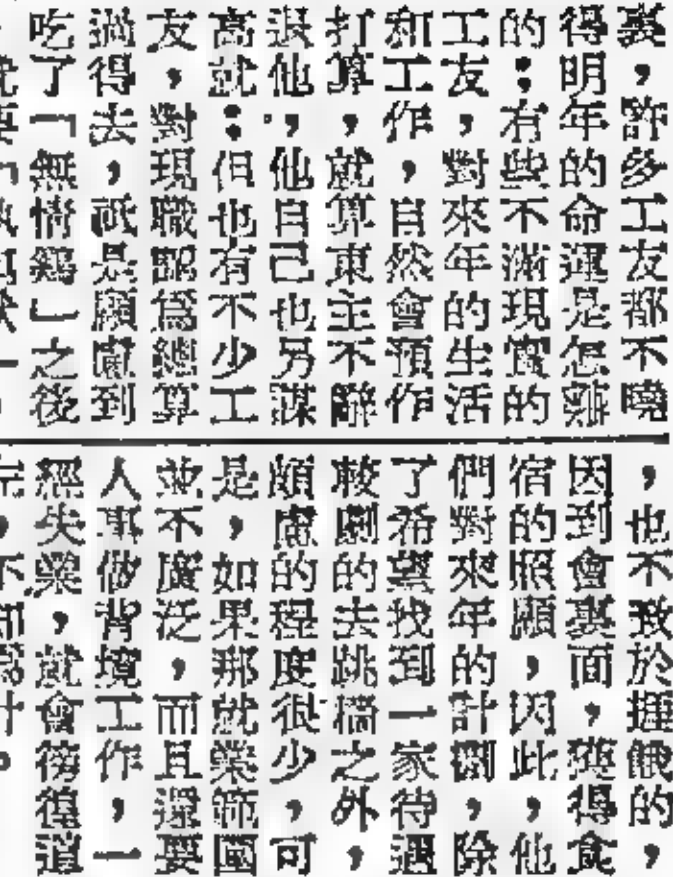 裏，許多工友都不曉
得明年的命運是怎樣
的；有些不滿現實的
工友，對來年的生活
和工作，自然會預作
打算，就算東主不辭
退他，他自己也另謀
高就；但也有不少工
友，對現職認爲總算
過得去，祇是顧慮到
吃了「無情鷄」之後
，也不致於捱餓的，
因到會裏面，獲得食
宿的照顧，因此，他
們對來年的計劃，除
了希望找到一家待遇
較劇的去跳槽之外，
顧慮的程度很少，可
是，如果那就業範圍
並不廣泛，而且還要
人事做背境工作，一
經失業，就會徬徨道